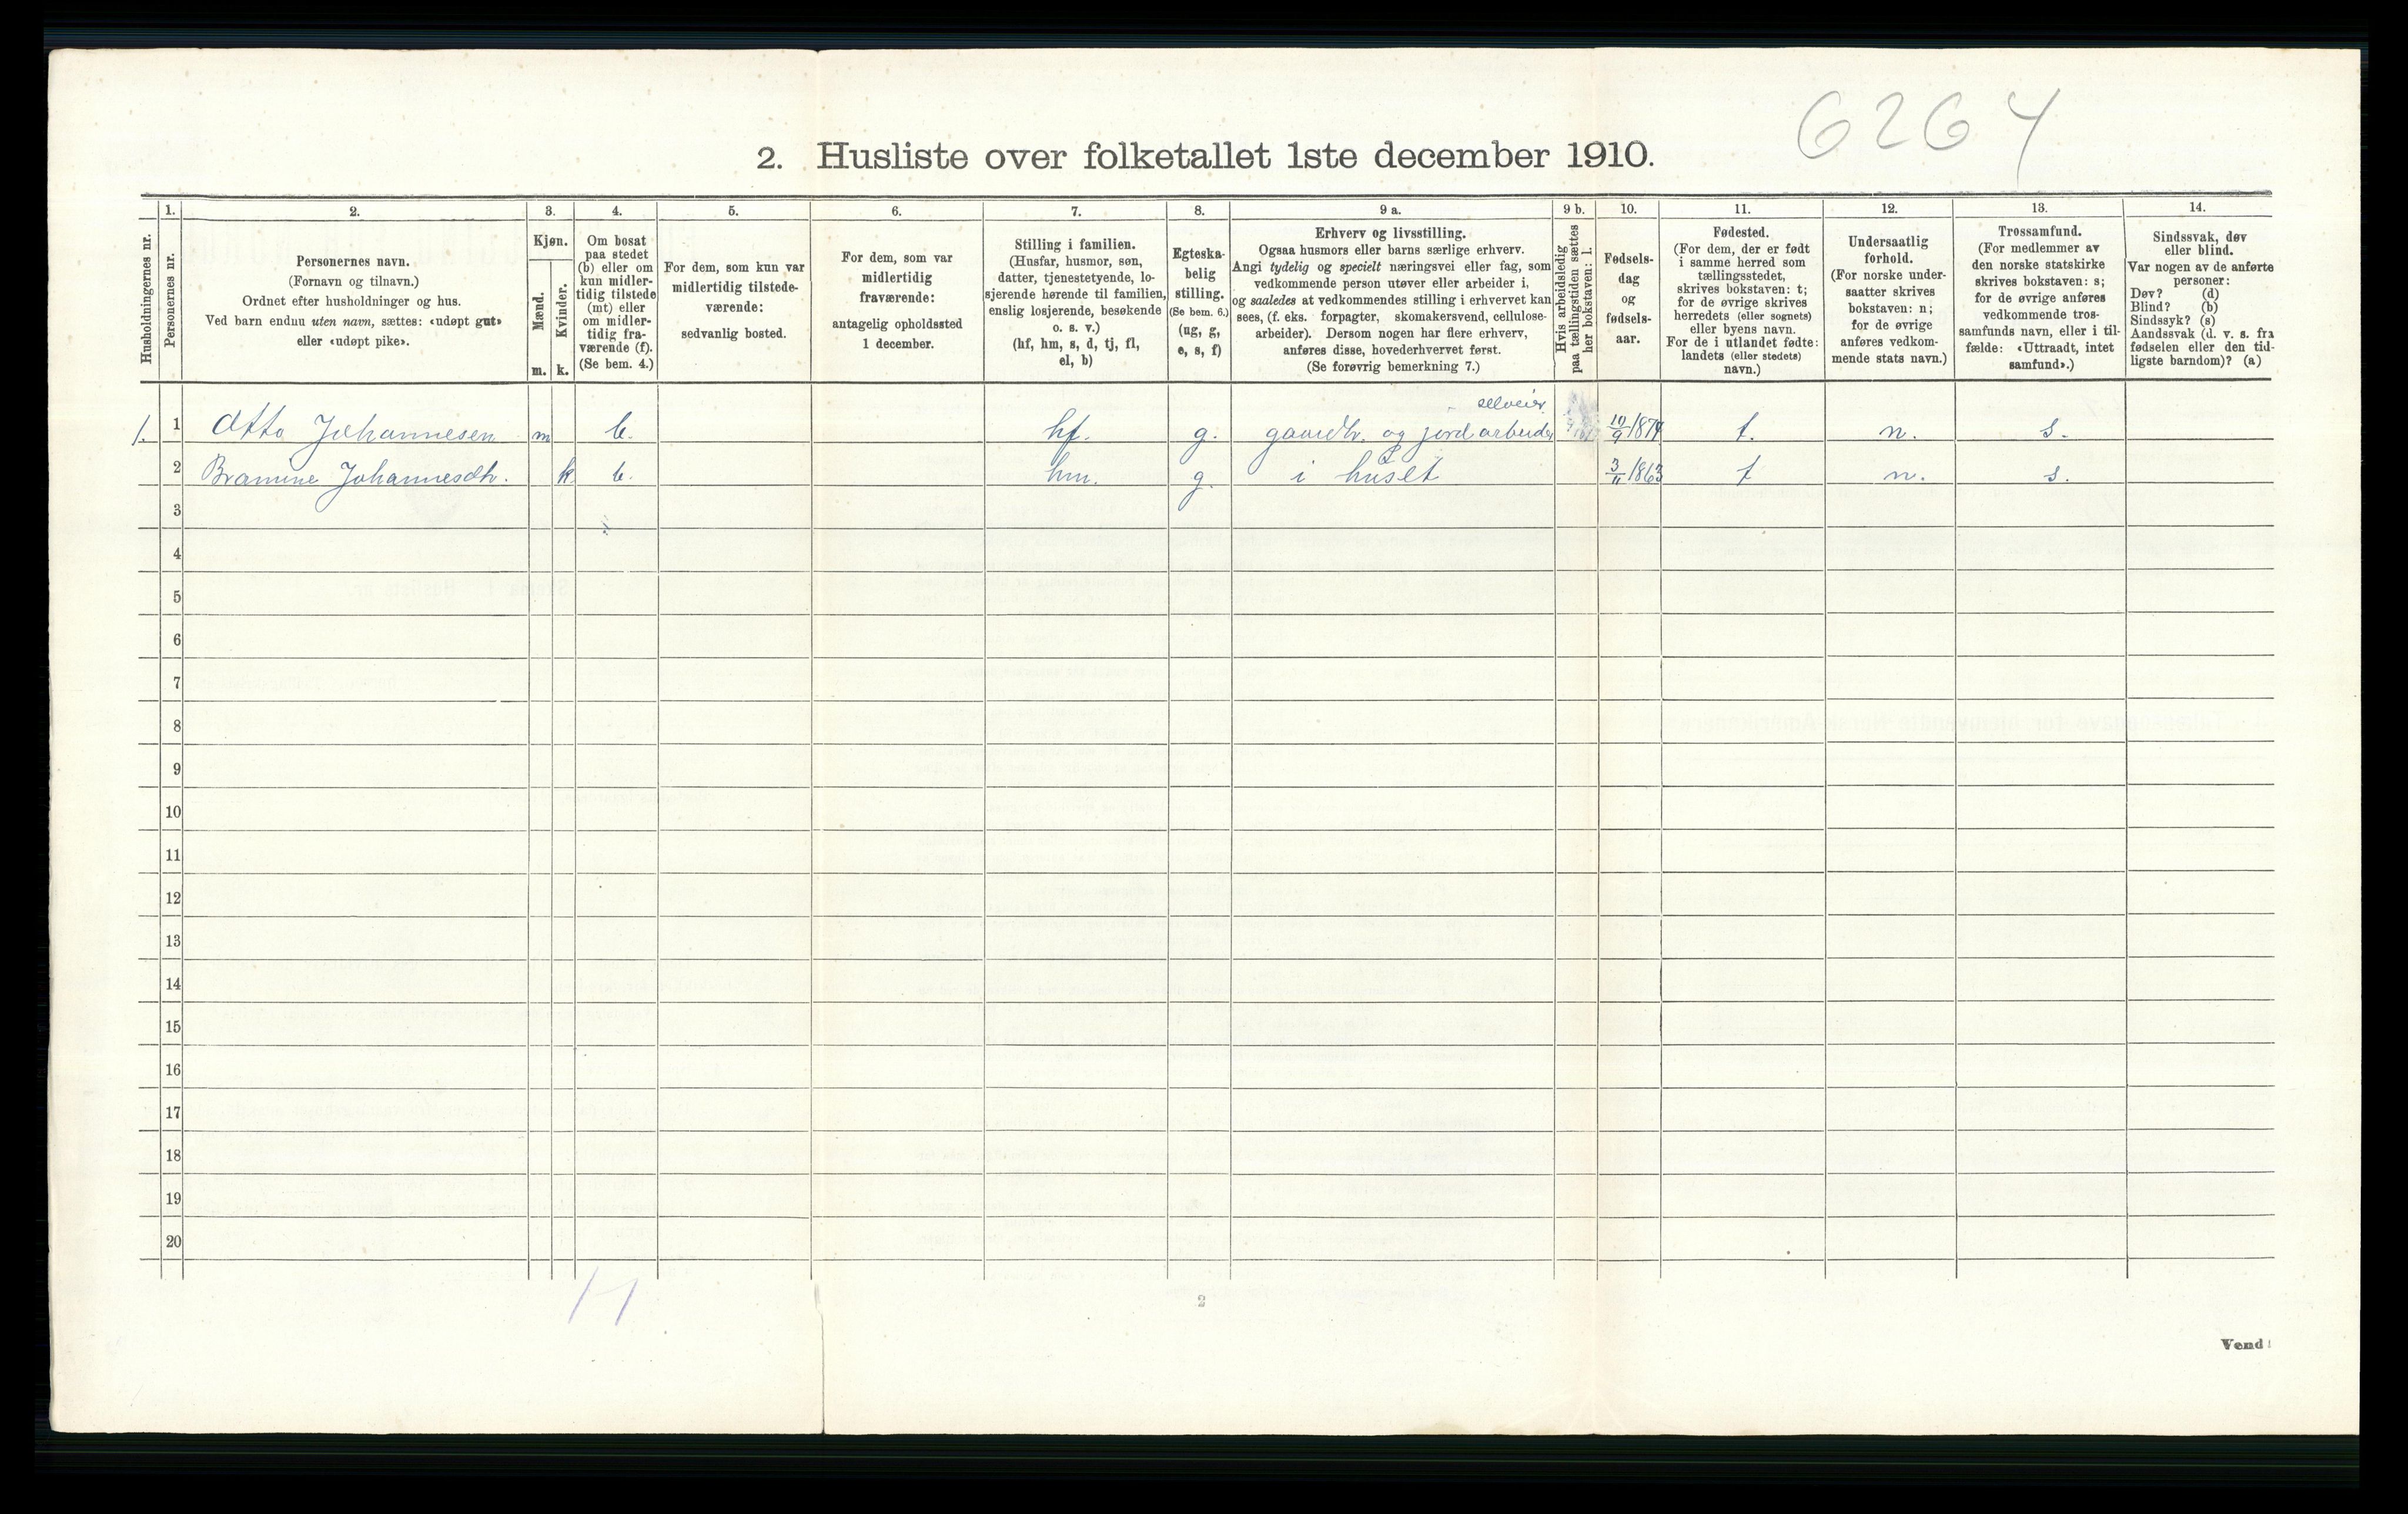 6264
2. Husliste over folketallet 1ste december 1910.
Husholdningernes nr.
1.
Personernes nr.
2.
Personernes navn.
(Fornavn og tilnavn.)
Ordnet efter husholdninger og hus.
Ved barn endnu uten navn, sættes: «udøpt gut»
eller «udøpt pike».
3.
Kjøn.
Mænd.
m.
Kvinder.
k.
4.
Om bosat
paa stedet
(b) eller om
kun midler-
tidig tilstede
(mt) eller
om midler-
tidig fra-
værende (f).
(Se bem. 4.)
5.
For dem, som kun var
midlertidig tilstede-
værende:
sedvanlig bosted.
6.
For dem, som var
midlertidig
fraværende:
antagelig opholdssted
1 december.
7.
Stilling i familien.
(Husfar, husmor, søn,
datter, tjenestetyende, lo-
sjerende hørende til familien,
enslig losjerende, besøkende
o. s. v.)
(hf, hm, s, d, tj, fl,
el, b)
8.
Egteska-
belig
stilling.
(Se bem. 6.)
(ug, g,
e, s, f)
9 a.
Erhverv og livsstilling.
Ogsaa husmors eller barns særlige erhverv.
Angi tydelig og specielt næringsvei eller fag, som
vedkommende person utøver eller arbeider i,
og saaledes at vedkommendes stilling i erhvervet kan
sees, (f. eks. forpagter, skomakersvend, cellulose-
arbeider). Dersom nogen har flere erhverv,
anføres disse, hovederhvervet først.
(Se forøvrig bemerkning 7.)
9 b.
Hvis arbeidsledig
paa tællingstiden sættes
her bokstaven: l.
10.
Fødsels-
dag
og
fødsels-
aar.
11.
Fødested.
(For dem, der er født
i samme herred som
tællingsstedet,
skrives bokstaven: t;
for de øvrige skrives
herredets (eller sognets)
eller byens navn.
For de i utlandet fødte:
landets (eller stedets)
navn.)
12.
Undersaatlig
forhold.
(For norske under-
saatter skrives
bokstaven: n;
for de øvrige
anføres vedkom-
mende stats navn.)
13.
Trossamfund.
(For medlemmer av
den norske statskirke
skrives bokstaven: s;
for de øvrige anføres
vedkommende tros-
samfunds navn, eller i til-
fælde: «Uttraadt, intet
samfund».)
14.
Sindssvak, døv
eller blind.
Var nogen av de anførte
personer:
Døv? (d)
Blind? (b)
Sindssyk? (s)
Aandssvak (d. v. s. fra
fødselen eller den tid-
ligste barndom)? (a)
selveier
1. 1 Otto Johannesen m b. hf. g. gaardbr. og jordarbeider 10/9 1874 t. n. s.
2 Bramine Johannesdtr. k b. hm. g. i huset 3/11 1863 t n. s.
3
4
5
6
7
8
9
10
11
12
13
14
15
16
17
18
19
20
2
Vend!